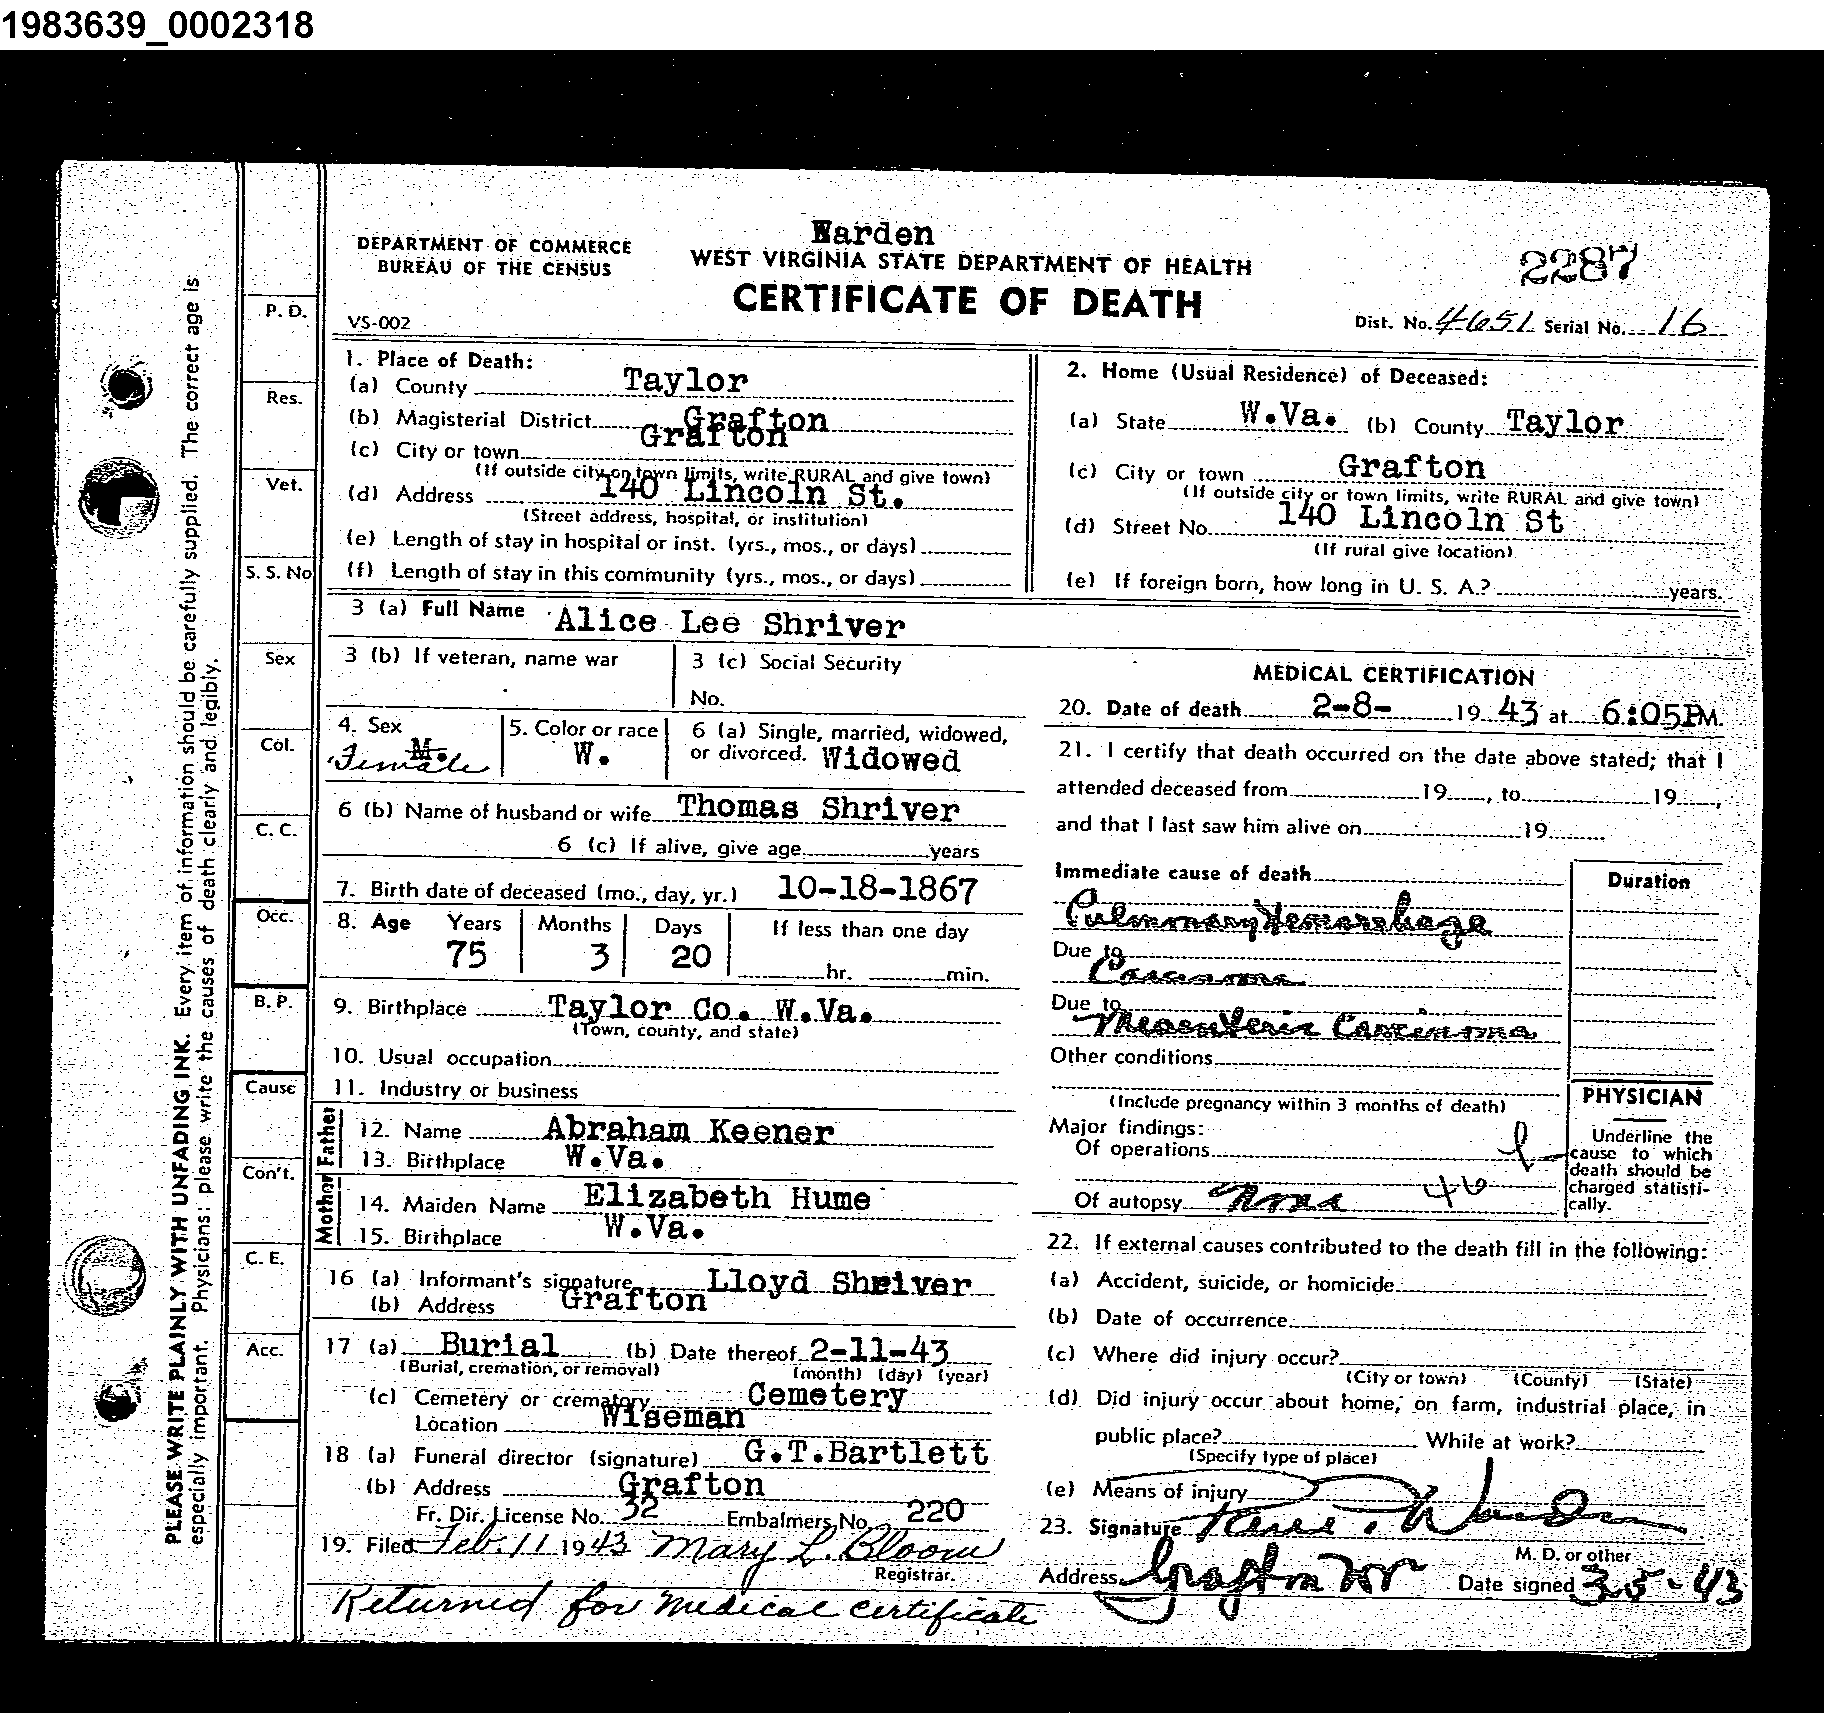 1983639_0002318
Warden
DEPARTMENT OF COMMERCE
BUREAU OF THE CENSUS
WEST VIRGINIA STATE DEPARTMENT OF HEALTH
CERTIFICATE OF DEATH
2287
VS-002
Dist. No. 4651 Serial No. 16
PLEASE WRITE PLAINLY WITH UNFADING INK. Every item of information should be carefully supplied. The correct age is
especially important. Physicians: please write the causes of death clearly and legibly.
P. D.
Res.
Vet.
S. S. No
Sex
Col.
C. C.
Occ.
B. P.
Cause
Con't.
C. E.
Acc.
1. Place of Death:
(a) County Taylor
(b) Magisterial District Grafton
(c) City or town Grafton
(If outside city or town limits, write RURAL and give town)
(d) Address 140 Lincoln St.
(Street address, hospital, or institution)
(e) Length of stay in hospital or inst. (yrs., mos., or days)
(f) Length of stay in this community (yrs., mos., or days)
2. Home (Usual Residence) of Deceased:
(a) State W.Va. (b) County Taylor
(c) City or town Grafton
(If outside city or town limits, write RURAL and give town)
(d) Street No. 140 Lincoln St
(If rural give location)
(e) If foreign born, how long in U. S. A.? years.
3 (a) Full Name Alice Lee Shriver
3 (b) If veteran, name war
3 (c) Social Security
No.
4. Sex M. Female
5. Color or race W.
6 (a) Single, married, widowed,
or divorced. Widowed
6 (b) Name of husband or wife Thomas Shriver
6 (c) If alive, give age years
7. Birth date of deceased (mo., day, yr.) 10-18-1867
8. Age Years Months Days If less than one day
75 3 20 hr. min.
9. Birthplace Taylor Co. W.Va.
(Town, county, and state)
10. Usual occupation
11. Industry or business
Father
12. Name Abraham Keener
13. Birthplace W.Va.
Mother
14. Maiden Name Elizabeth Hume
15. Birthplace W.Va.
16 (a) Informant's signature Lloyd Shriver
(b) Address Grafton
17 (a) Burial (b) Date thereof 2-11-43
(Burial, cremation, or removal) (month) (day) (year)
(c) Cemetery or crematory Cemetery
Location Wiseman
18 (a) Funeral director (signature) G.T.Bartlett
(b) Address Grafton
Fr. Dir. License No. 32 Embalmers No. 220
19. Filed Feb. 11 1943 Mary L. Bloom
Registrar.
Returned for medical certificate
MEDICAL CERTIFICATION
20. Date of death 2-8- 19 43 at 6:05PM.
21. I certify that death occurred on the date above stated; that I
attended deceased from 19 , to 19 ,
and that I last saw him alive on 19
Immediate cause of death
Duration
Pulmonary Hemorrhage
Due to
Carcinoma
Due to
Mesenteric Carcinoma
Other conditions
(Include pregnancy within 3 months of death)
Major findings:
Of operations
Of autopsy None 46
PHYSICIAN
Underline the
cause to which
death should be
charged statisti-
cally.
22. If external causes contributed to the death fill in the following:
(a) Accident, suicide, or homicide
(b) Date of occurrence
(c) Where did injury occur?
(City or town) (County) (State)
(d) Did injury occur about home, on farm, industrial place, in
public place? While at work?
(Specify type of place)
(e) Means of injury
23. Signature
M. D. or other
Address Grafton Date signed 3-5-43